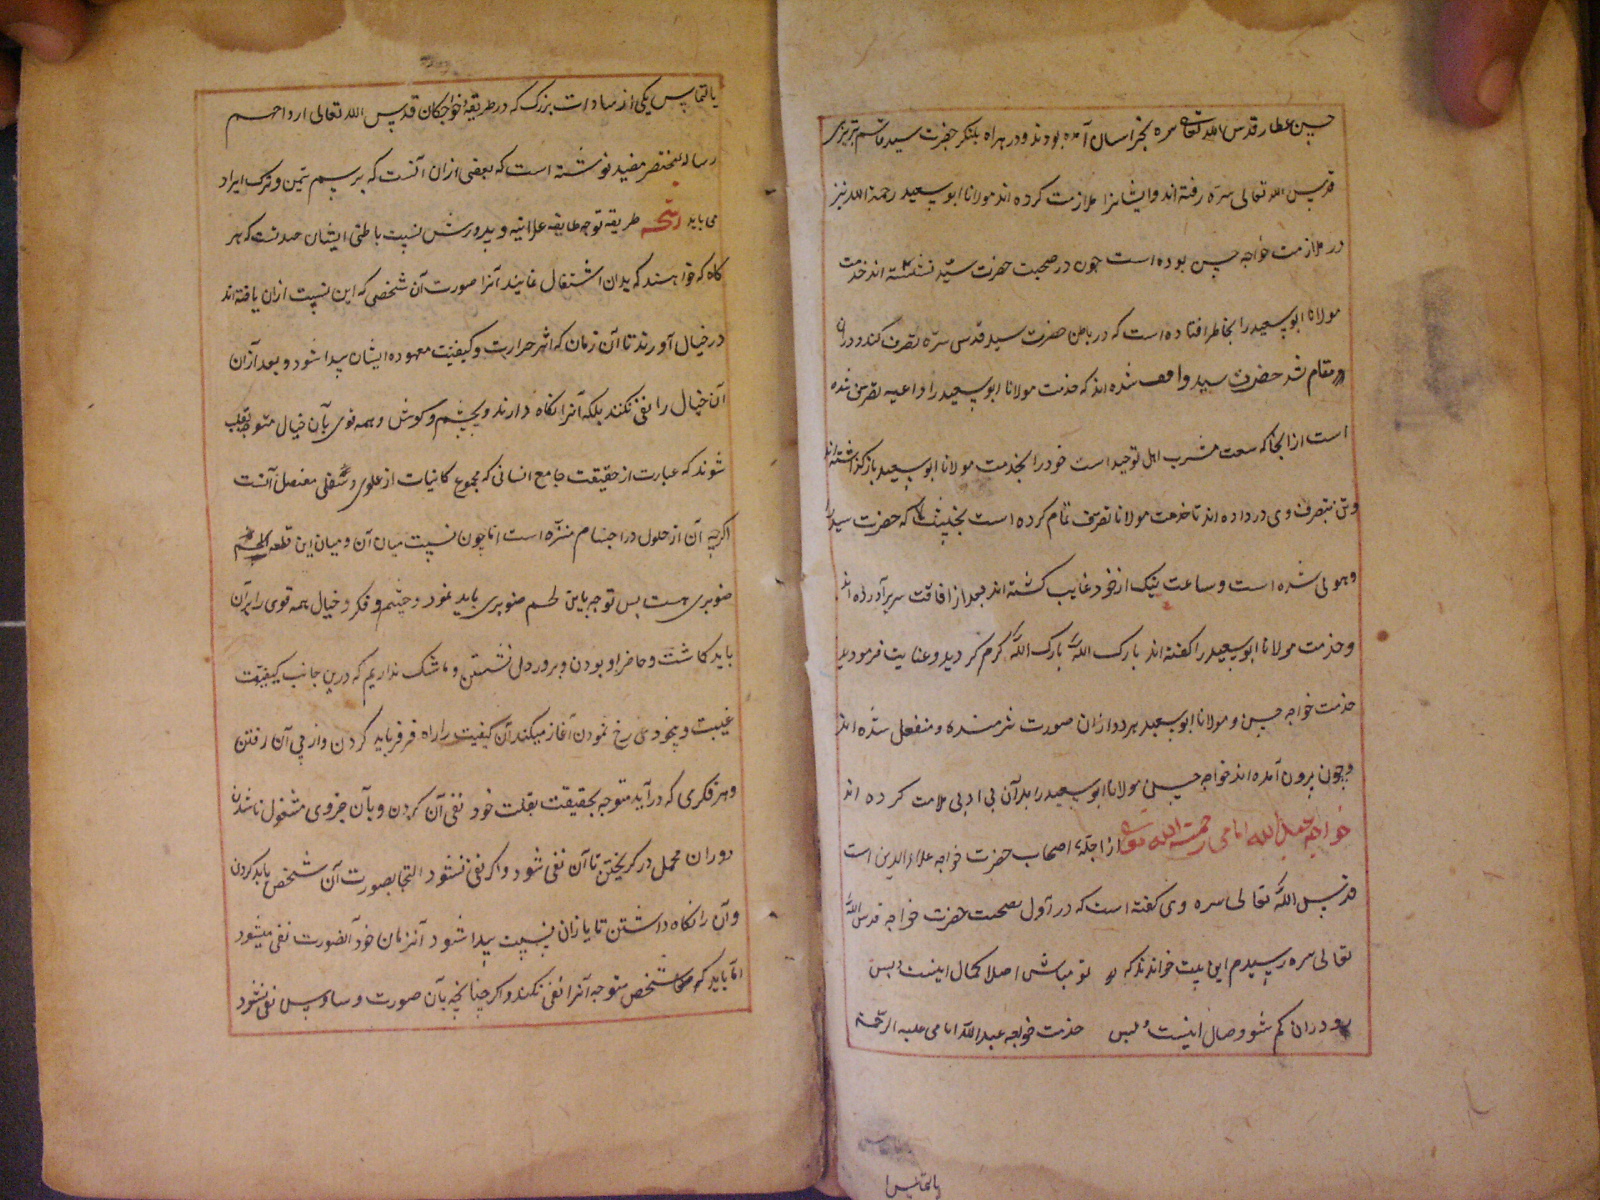 حسین عطار قدس الله تعالی سره بخراسان آمده بودند و در هراه بلنکر حضرت سید قاسم تبریزی
قدس الله تعالی سره رفته اند و ایشانرا ملازمت کرده اند مولانا ابو سعید رحمة الله نیز
در ملازمت خواجه حسین بوده است چون در صحبت حضرت سید نشسته اند خدمت
مولانا ابو سعید را بخاطر افتاده است که در باطن حضرت سید قدس سره تصرف کند و در آن
مقام شد حضرت سید واقف شده اند که خدمت مولانا ابو سعید را داعیه تصرف شده
است از انجا که سعت مشرب اهل توحید است خود را بخدمت مولانا ابو سعید باز کذاشته اند
وتن بتصرف وی در داده اند تا خدمت مولانا تصرف تمام کرده است بحیثیتی که حضرت سید را
وهولی شده است و ساعت نیک از خود غایب کشته اند بعد از افاقت سر بر آورده اند
و خدمت مولانا ابو سعید را کفته اند بارک الله بارک الله کرم کردید و عنایت فرمودید
خدمت خواجه حسین و مولانا ابو سعید هر دو ازان صورت شرمنده و منفعل شده اند
و چون بیرون آمده اند خواجه حسین مولانا ابو سعید را بدآن بی ادبی ملامت کرده اند
خواجه عبد الله امامی رحمت الله تعالی از اجلهٔ اصحاب حضرت خواجه علاء الدین است
قدس الله تعالی سره وی کفته است که در اول بصحبت حضرت خواجه قدس الله
تعالی سره رسیدم این بیت خواندند که تو مباش اصلا کمال اینست و بس
رو دران کم شو وصال اینست و بس خدمت خواجه عبد الله امامی علیه الرحمة
بالتماس
بالتماس یکی از سادات بزرک که در طریقهٔ خواجکان قدس الله تعالی ارواحهم
رساله مختصر مفید نوشته است که بعضی ازان آنست که برسم تیمن و تبرک ایراد
می یابد رشحه طریقه توجه طایفه علائیه و پرورش نسبت باطنی ایشان چنانست که هر
کاه که خواهند که بدان اشتغال نمایند آنرا صورت آن شخصی که این نسبت ازان یافته اند
در خیال آورند تا آن زمان که اثر حرارت و کیفیت معهوده ایشان پیدا شود و بعد ازان
آن خیال را نفی نکنند بلکه آنرا نکاه دارند و بچشم و کوش و همه قوی بآن خیال متوجه بقلب
شوند که عبارت از حقیقت جامع انسانی که مجموع کاینات از علوی و سفلی مفصل آنست
اکرچه آن از حلول در اجسام منزه است اما چون نسبت میان آن و میان این قطعه لحم
صنوبری هست پس توجه باین لحم صنوبری باید نمود و چشم و فکر و خیال همه قوی را برآن
باید کماشت و حاضر او بودن و بر در دل نشستن و ما شک نداریم که درین جانب کیفیت
غیبت و بیخودی رخ نمودن آغاز میکند آن کیفیت را راه فرض باید کردن و از پی آن رفتن
و هر فکری که در آید متوجه بحقیقت بقلب خود نفی آن کردن و بآن جزوی مشغول ناشدن
دوران مجمل در کریختن تا آن نفی شود و اکر نفی نشود التجا بصورت آن شخص باید کردن
و آن را نکاه داشتن تا باز آن نسبت پیدا شود آنزمان خود آنصورت نفی میشود
اما باید که شخص متوجه آنرا نفی نکند و اکر چنانچه بآن صورت وساوس نفی نشود